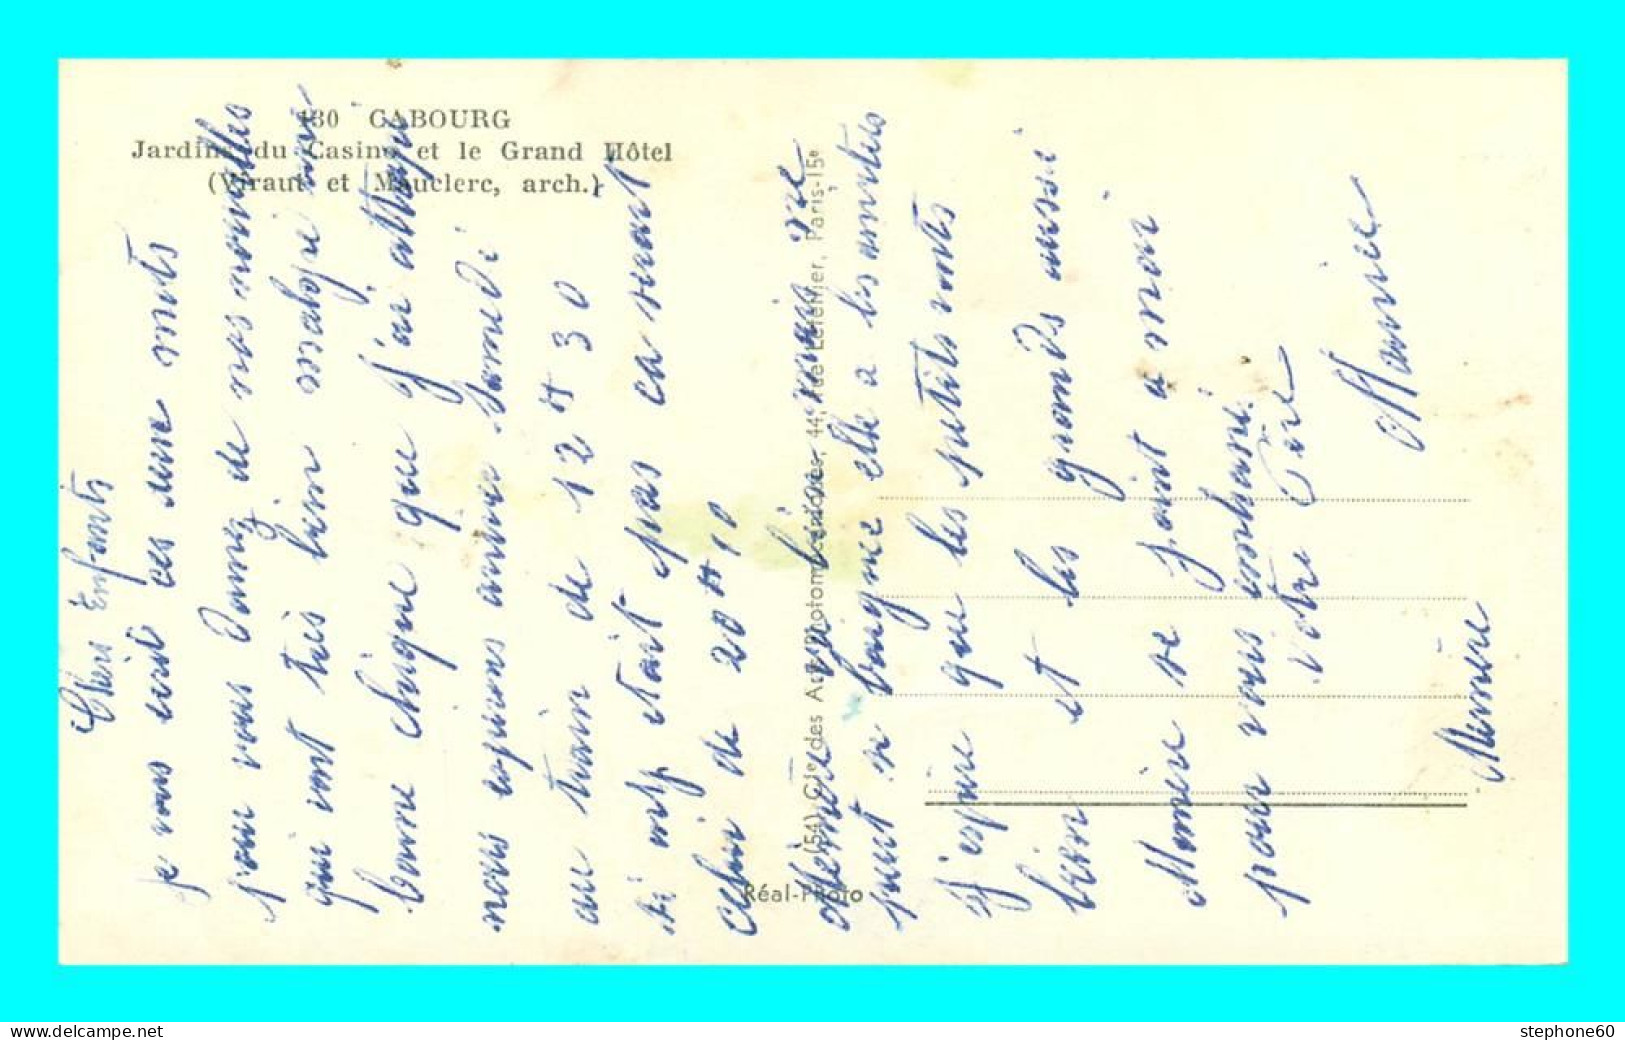 130 CABOURG
Jardins du Casino et le Grand Hôtel
(Viraut et Mauclerc, arch.)
Chers Enfants
je vous ecrit ces deux mots
pour vous donnez de nos nouvelles
qui sont très bien malgré une
bonne que j'ai attapé
nous espirons arrive Samedi
au train de 12 H 30
si est tait pas ca serait
celui de 20 H 10
Mémère va bien mais ne
peut se baigné elle a les
J'espire que les petits sonts
bien et les grands aussi
Mémère se joint à moi
pour vous embrassé.
Votre Père
Maurice
Mémère
(54) Cie des Arts Photomécaniques, 44, rue Letellier, Paris-15e
Réal-Photo
www.delcampe.net
stephone60